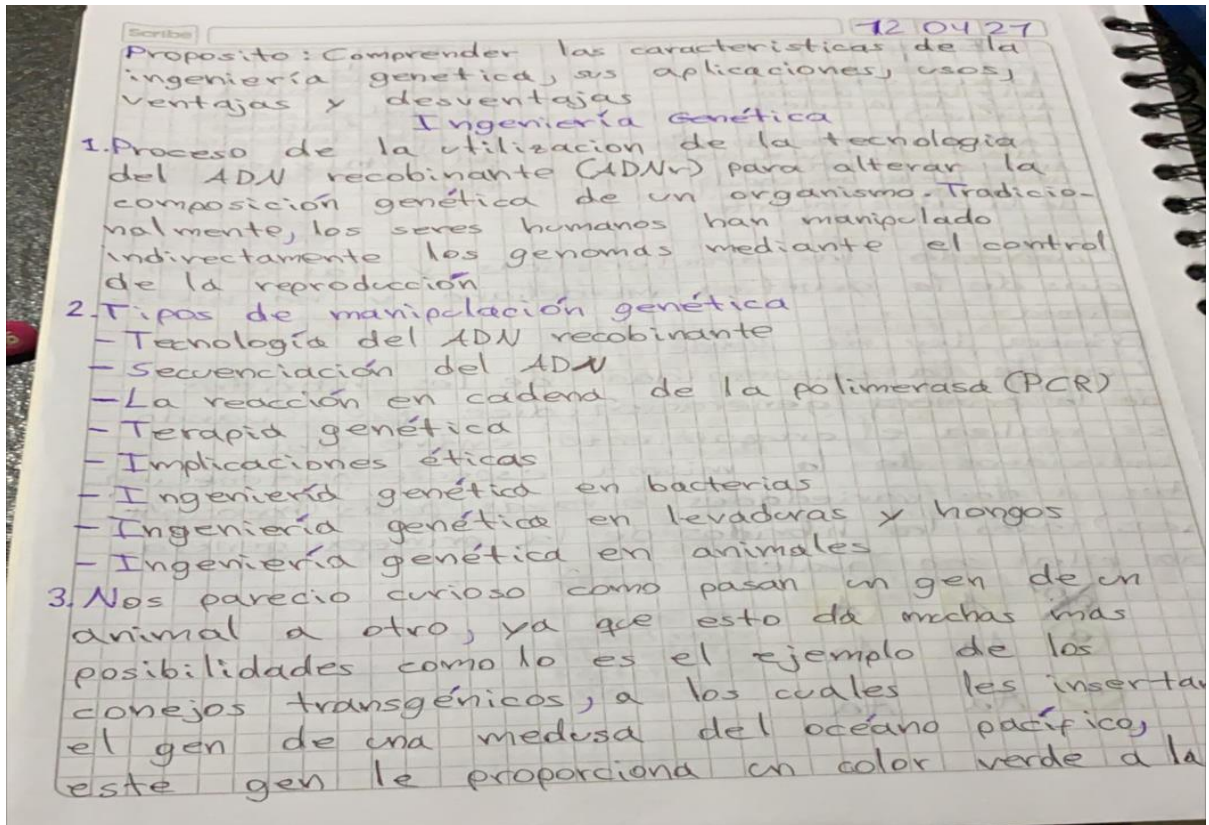 Scribe
12 04 21
Proposito: Comprender las caracteristicas de la
ingeniería genetica, sus aplicaciones, usos,
ventajas y desventajas
Ingeniería Genética
1. Proceso de la utilizacion de la tecnologia
del ADN recobinante (ADNr) para alterar la
composición genética de un organismo. Tradicio-
nalmente, los seres humanos han manipulado
indirectamente los genomas mediante el control
de la reproducción
2. Tipos de manipulación genética
- Tecnología del ADN recobinante
- Secuenciación del ADN
- La reacción en cadena de la polimerasa (PCR)
- Terapia genética
- Implicaciones éticas
- Ingeniería genética en bacterias
- Ingeniería genética en levaduras y hongos
- Ingeniería genética en animales
3. Nos parecio curioso como pasan un gen de un
animal a otro, ya que esto da muchas mas
posibilidades como lo es el ejemplo de los
conejos transgénicos, a los cuales les insertan
el gen de una medusa del océano pacífico,
este gen le proporciona un color verde a la